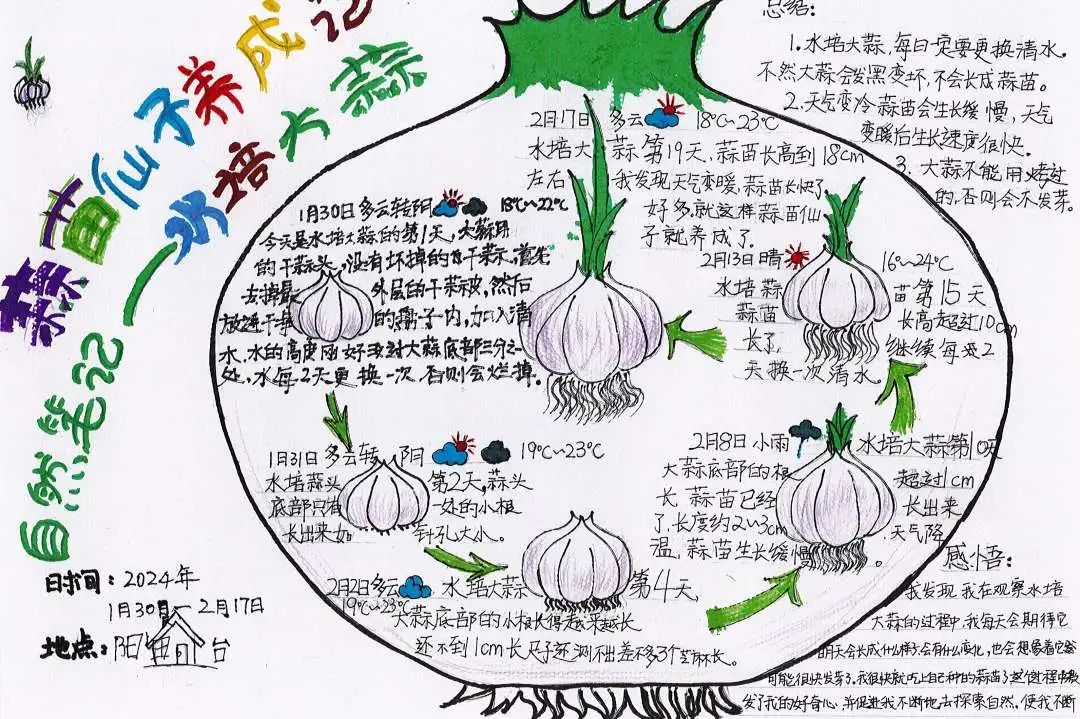 蒜苗仙子养成记
自然笔记——水培大蒜
时间：2024年
1月30日—2月17日
地点：阳台
1月30日 多云转阴 18℃~22℃
今天是水培大蒜的第1天，大蒜用
的干蒜头，没有坏掉的干蒜，首先
去掉最外层的干蒜皮，然后
放进干净的瓶子内，加入清
水，水的高度刚好没过大蒜底部三分之一
处，水每2天更换一次，否则会烂掉。
1月31日 多云转阴 19℃~23℃
水培蒜头第2天，蒜头
底部只有一处的小根
长出来如针孔大小。
2月2日 多云 水培大蒜第4天，
19℃~23℃
大蒜底部的小根长得越来越长
还不到1cm长尺子还测不出差不多3个芝麻长。
2月8日 小雨 水培大蒜第10天
大蒜底部的根超过1cm
长 蒜苗已经长出来
了，长度约2~3cm天气降
温，蒜苗生长缓慢。
2月13日 晴 16℃~24℃
水培蒜苗第15天
蒜苗长高超过10cm
长了，继续每天2
天换一次清水。
2月17日 多云 18℃~23℃
水培大蒜第19天，蒜苗长高到18cm
左右 我发现天气变暖，蒜苗长快了
好多，就这样蒜苗仙
子就养成了。
总结：
1.水培大蒜，每日一定要更换清水。
不然大蒜会发黑变坏，不会长成蒜苗。
2.天气变冷蒜苗会生长缓慢，天气
变暖后生长速度很快。
3.大蒜不能用烤过
的，否则会不发芽。
感悟：
我发现我在观察水培
大蒜的过程中，我每天会期待它
明天会长成什么样子会有什么变化，也会想象着它
可能很快发芽了，我很快就吃上自己种的蒜苗了这个过程中
发了我的好奇心，并促进我不断地去探索自然，使我不断